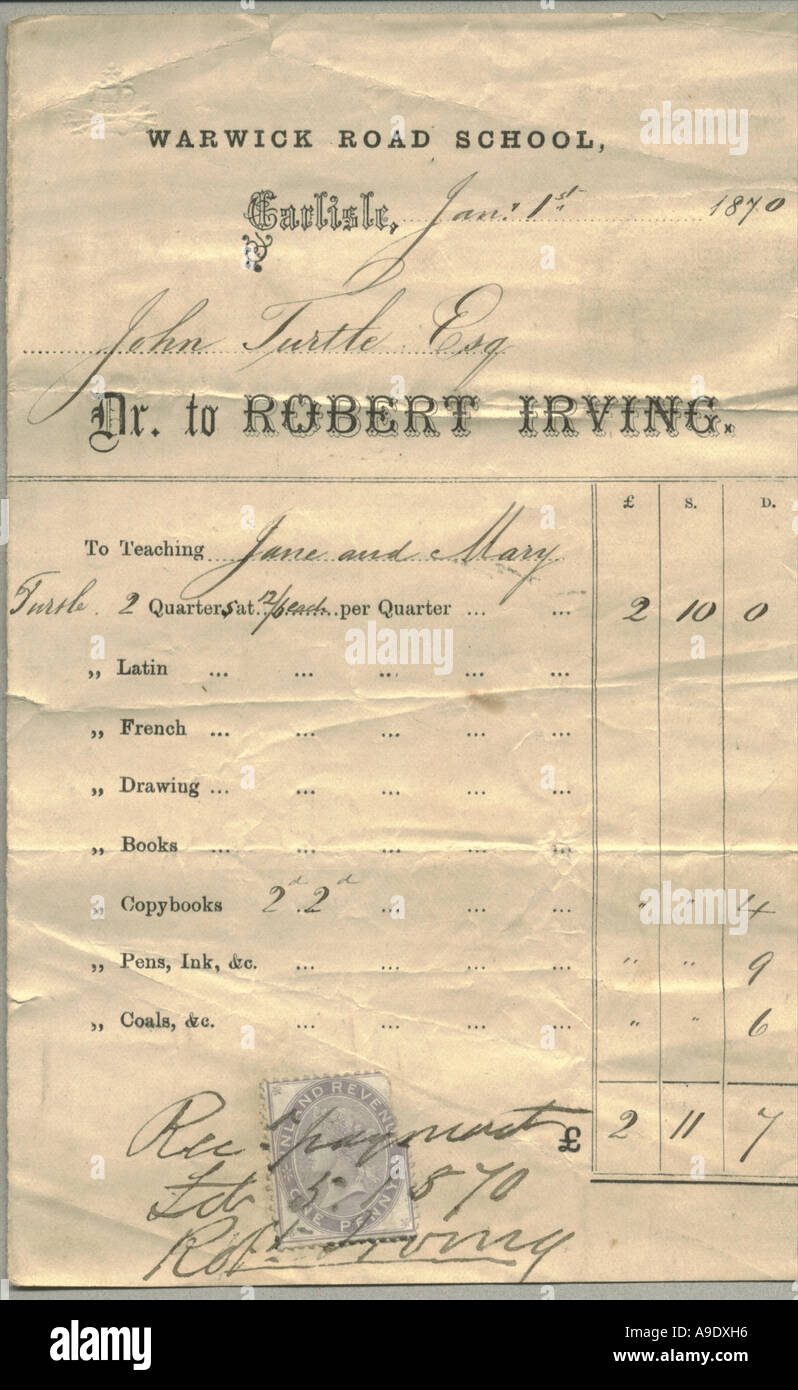 WARWICK ROAD SCHOOL,
Carlisle, Jan: 1st 1870
John Turtle Esq
Dr. to ROBERT IRVING.
£ S. D.
To Teaching Jane and Mary
Turtle 2 Quarters at 12/6 each per Quarter ... ... 2 10 0
„ Latin ... ... ... ... ...
„ French ... ... ... ... ...
„ Drawing ... ... ... ... ...
„ Books ... ... ... ... ...
„ Copybooks 2d 2d ... ... ... " " 4
„ Pens, Ink, &c. ... ... ... ... " " 9
„ Coals, &c. ... ... ... ... " " 6
£ 2 11 7
INLAND REVENUE
ONE PENNY
Rec. payment
Feb 5. 1870
Robt. Irving
alamy
Image ID: A9DXH6
www.alamy.com